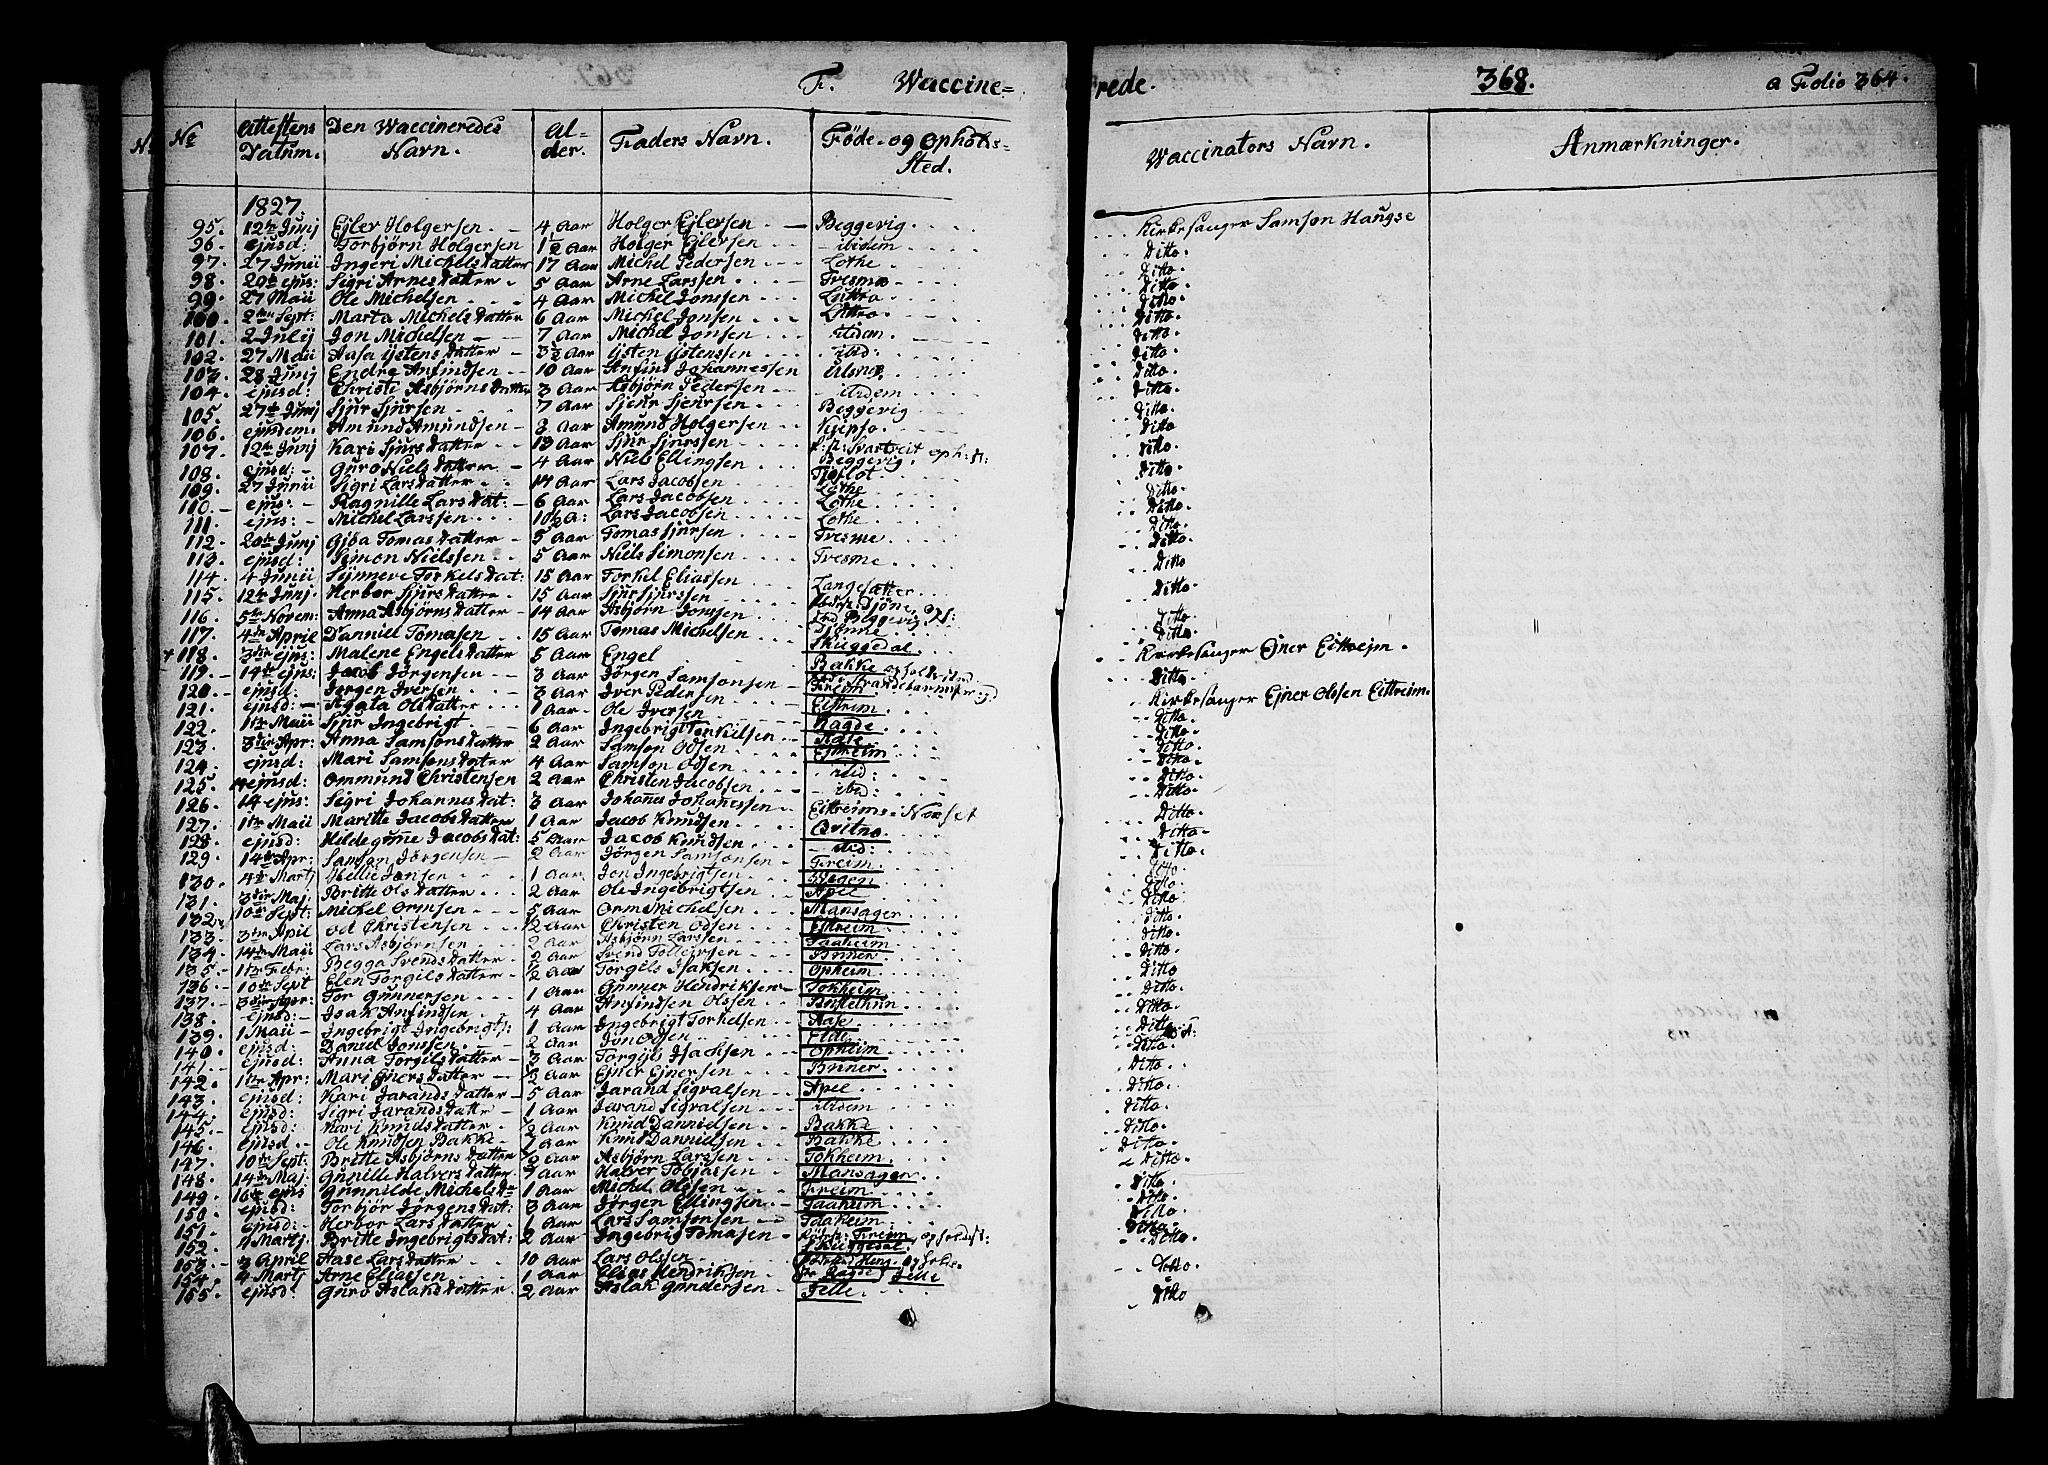 F. Waccine= rede. 368. a Folio 364.
No Attestens Datum. Den Waccineredes Navn. Alder. Faders Navn. Føde- og Opholds= Sted. Waccinators Navn. Anmærkninger.
1827
95. 12te Junj Ejler Holgersen 4 Aar Holger Ejlersen Beggevig Kirkesanger Samson Haugse
96. ejusd: Torbjørn Holgersen 1½ Aar Holger Ejlersen ibidem Ditto.
97. 27 Junii Ingeri Michelsdatter 17 Aar Michel Pedersen Lothe Ditto.
98. 20de ejus: Sigri Arnesdatter 5 Aar Arne Larssen Tresmo Ditto.
99. 27 Maii Ole Michelsen 4 Aar Michel Jonssen Luttro Ditto.
100. 2den Sept: Marta Michelsdatter 6 Aar Michel Jonsen Luttro Ditto.
101. 2 Julij Jon Michelsen 7 Aar Michel Jonsen ibidem Ditto.
102. 27 Maii Aasa Ijstensdatter 3½ Aar Ijsten Ijstenssen ibid: Ditto.
103. 28 Junj Endre Anfindsen 10 Aar Anfind Johannessen Ditto.
104. ejusd: Christi Asbjørnsdatter 3 Aar Asbjørn Pedersen ibidem Ditto.
105. 27de Junj Sjur Sjursen 7 Aar Sjeur Sjeursen Beggevig Ditto.
106. ejusdem. Amund Amundsen 3 Aar Amund Holgersen Ditto
107. 12te Junj Kari Sjursdatter 13 Aar Sjur Sjurssen f: st: Svartveit oph: st: Beggevig. Ditto.
108. ejusd: Guro Nielsdatter 4 Aar Niels Ellingsen Tjoflot Ditto.
109. 27 Junii Sigri Larsdatter 14 Aar Lars Jacobsen Lothe Ditto.
110. ejus: Ragnille Larsdat: 6 Aar Lars Jacobsen Lothe Ditto.
111. ejus: Michel Larssen 10½ A: Lars Jacobsen Lothe Ditto.
112. 20de Junj Gjøa Tomasdatter 5 Aar Tomas Sjursen Tresme Ditto.
113. ejusd: Simon Nielssen 5 Aar Niels Simonsen Tresme Ditto
114. 4 Junii Synneve Torkelsdat: 15 Aar Torkel Eliassen Langesætter Ditto.
115. 12te Junj. Herbor Sjursdatter 15 Aar Sjur Sjurssen Beggevig Ditto.
116. 5te Novem: Anna Asbjørnsdatter 14 Aar Asbjørn Jonssen Djønne Ditto.
117. 4de April Danniel Tomasen 15 Aar Tomas Michelsen Skuggedal Kirkesanger Ejner Eitreim.
+ 118. 3die ejus: Malene Engelsdatter 5 Aar Engel Bakke Ditto.
119. 14de ejus: Jacob Jørgensen 3 Aar Jørgen Samsonsen Freim Kirkesanger Ejner Olssen Eittreim.
120. ejusd: Jørgen Iversen 3 Aar Iver Pedersen
121. ejusd: Agata Olsdatter 1 Aar Ole Iversen Eittreim Ditto.
122. 1te Maii Sjur Ingebrigt 6 Aar Ingebrigt Torkilsen Ragde Ditto.
123. 3die Apr: Anna Samsonsdatter 2 Aar Samson Odsen Ditto.
124. ejusd: Mari Samsonsdatter 4 Aar Samson Odsen Ditto.
125. ejusd: Ommund Christensen 2 Aar Christen Jacobsen ibid: Ditto.
126. 14 ejus: Sigri Johannesdat: 3 Aar Johannes Johannessen ibid: Ditto.
127. 1te Maii Maritte Jacobsdatter 1 Aar Jacob Knudsen Eittreims-Næset Ditto.
128. ejusd: Hildegunne Jacobsdat: 5 Aar Jacob Knudsen Qvitno Ditto.
129. 14de Apr: Samson Jørgensen 2 Aar Jørgen Samsonsen ibid: Ditto.
130. 4de Martj Hellie Jonsen 1 Aar Jon Ingebrigtsen Freim Ditto
131. 3die Maj Britte Olsdatter 2 Aar Ole Ingebrigtsen Apel Ditto
132. 10de Sept: Michel Ormsen 5 Aar Orm Michelsen Mansager Ditto.
133. 3die April Od Christensen ½ Aar Christen Odsen Ditto.
134. 14de Maii Lars Asbjørnsen 2 Aar Asbjørn Larssen Ditto.
135. 1te Febr: Begga Svendsdatter 2 Aar Svend Tolleivsen Bruer Ditto
136. 10de Sept Elen Torgilsdatter ½ Aar Torgils Isaksen Opheim Ditto.
137. 3die Apr: Tor Gunnersen 1 Aar Gunner Hendriksen Tokheim Ditto.
138. ejusd: Isak Anfindsen 4 Aar Anfindsen Olssen Ditto.
139. 1 Maii Ingebrigt Ingebrigts: 1 Aar Ingebrigt Torkelsen Aase Ditto
140. ejusd: Daniel Jonssen 2 Aar Jon Odsen Eide Ditto.
141. ejusd: Anna Torgilsdatter 3 Aar Torgils Isacksen Opheim Ditto.
142. 1te Apr: Mari Ejnersdatter ½ Aar Ejner Ejnersen Bruer Ditto.
143. ejusd: Kari Jarandsdatter 5 Aar Jarand Sigvalsen Apel Ditto.
144. ejusd: Sigri Jarandsdatter 1 Aar Jarand Sigvalsen ibidem Ditto.
145. ejusd: Kari Knudsdatter 2 Aar Knud Dannielsen Bakke Ditto.
146. ejusd Ole Knudsen Bakke 1 Aar Knud Dannielsen Bakke Ditto.
147. 10de Sept: Britte Asbjørnsdatter Aar Asbjørn Larssen Tokheim Ditto.
148. 14de Maj. Gunille Halversdatter Aar Halver Tobjassen Mansager Ditto.
149. 16de ejus Gunnilde Michelsd 1 Aar Michel Olssen Freim Ditto.
150. ejusd: Torbjør Jørgensdat: 3 Aar Jørgen Ellingsen Ditto.
151. ejusd: Herbor Larsdatter 1 Aar Lars Samsonsen Ditto.
152. Martj Britte Ingebrigtsdat: 2 Aar Ingebrig Tomasen Freim, opholdst: Skuggedal Ditto.
153. 3 April Aase Larsdatter 10 Aar Lars Olssen Ditto.
154. 4 Martj Arne Eliassen 1 Aar Elias Hendriksen Ragde Jelle
155. ejusd: Guro Aslaksdatter 2 Aar Aslak Gundersen Jelle Ditto